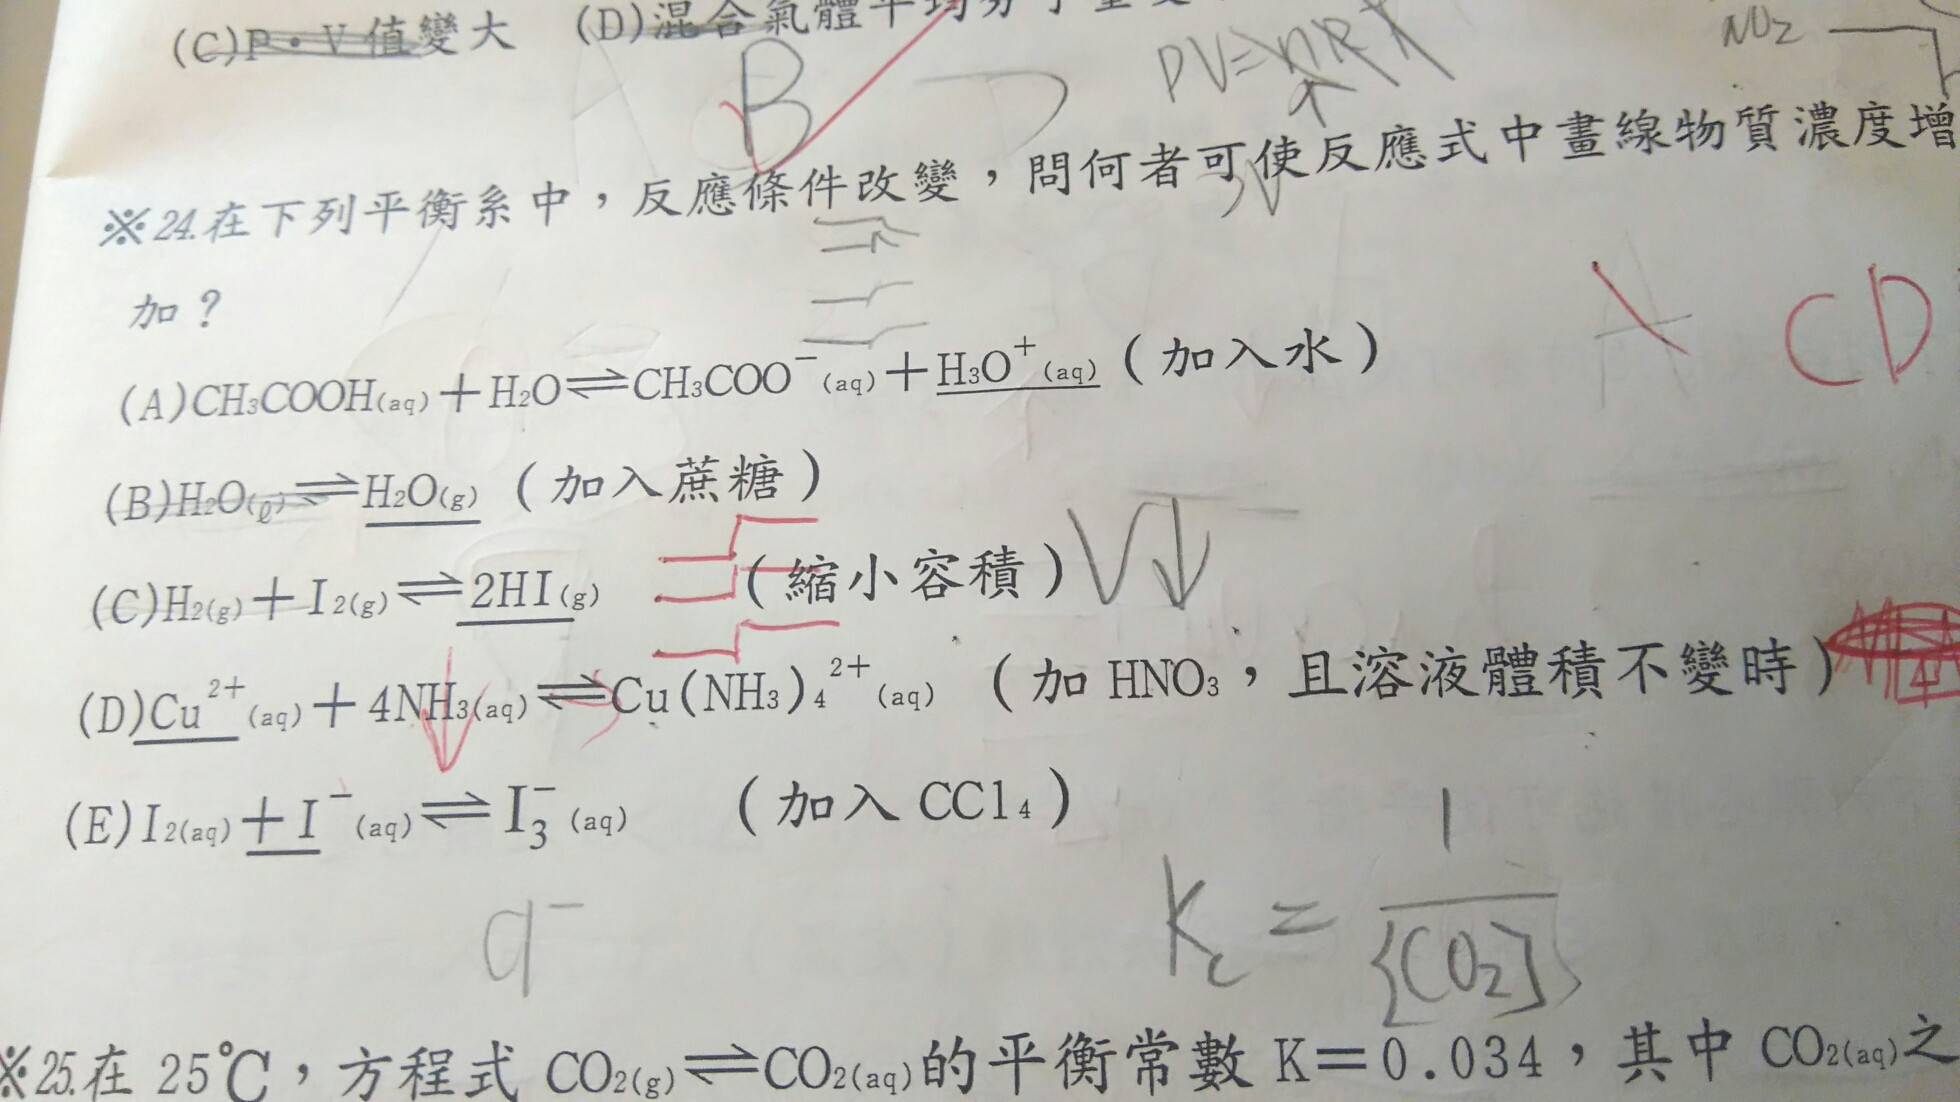 (C)P·V值變大 (D)混合氣體平均分子量變
PV=nRT
NO2
B
※24.在下列平衡系中，反應條件改變，問何者可使反應式中畫線物質濃度增
加？
A CD
(A)CH₃COOH(aq)＋H₂O⇌CH₃COO⁻(aq)＋H₃O⁺(aq)（加入水）
(B)H₂O(ℓ)⇌H₂O(g)（加入蔗糖）
(C)H₂(g)＋I₂(g)⇌2HI(g)（縮小容積）V↓
(D)Cu²⁺(aq)＋4NH₃(aq)⇌Cu(NH₃)₄²⁺(aq)（加 HNO₃，且溶液體積不變時）
(E)I₂(aq)＋I⁻(aq)⇌I₃⁻(aq)（加入 CCl₄）
Kc = 1/[CO2]
※25.在 25℃，方程式 CO₂(g)⇌CO₂(aq)的平衡常數 K＝0.034，其中 CO₂(aq)之